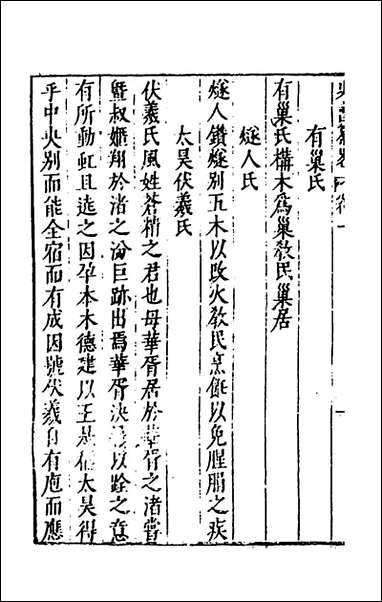 有巢氏
有巢氏構木爲巢教民巢居
燧人氏
燧人鑽燧別五木以改火教民烹飪以免腥腸之疾
太昊伏羲氏
伏羲氏風姓蒼精之君也母華胥居於華胥之渚嘗
曁叔嫟翔於渚之汾巨跡出焉華胥決履以跧之意
有所動虹且遶之因孕本木德建以王是在太昊得
乎中央别而能全宿而有成因號伏羲自有庖而應